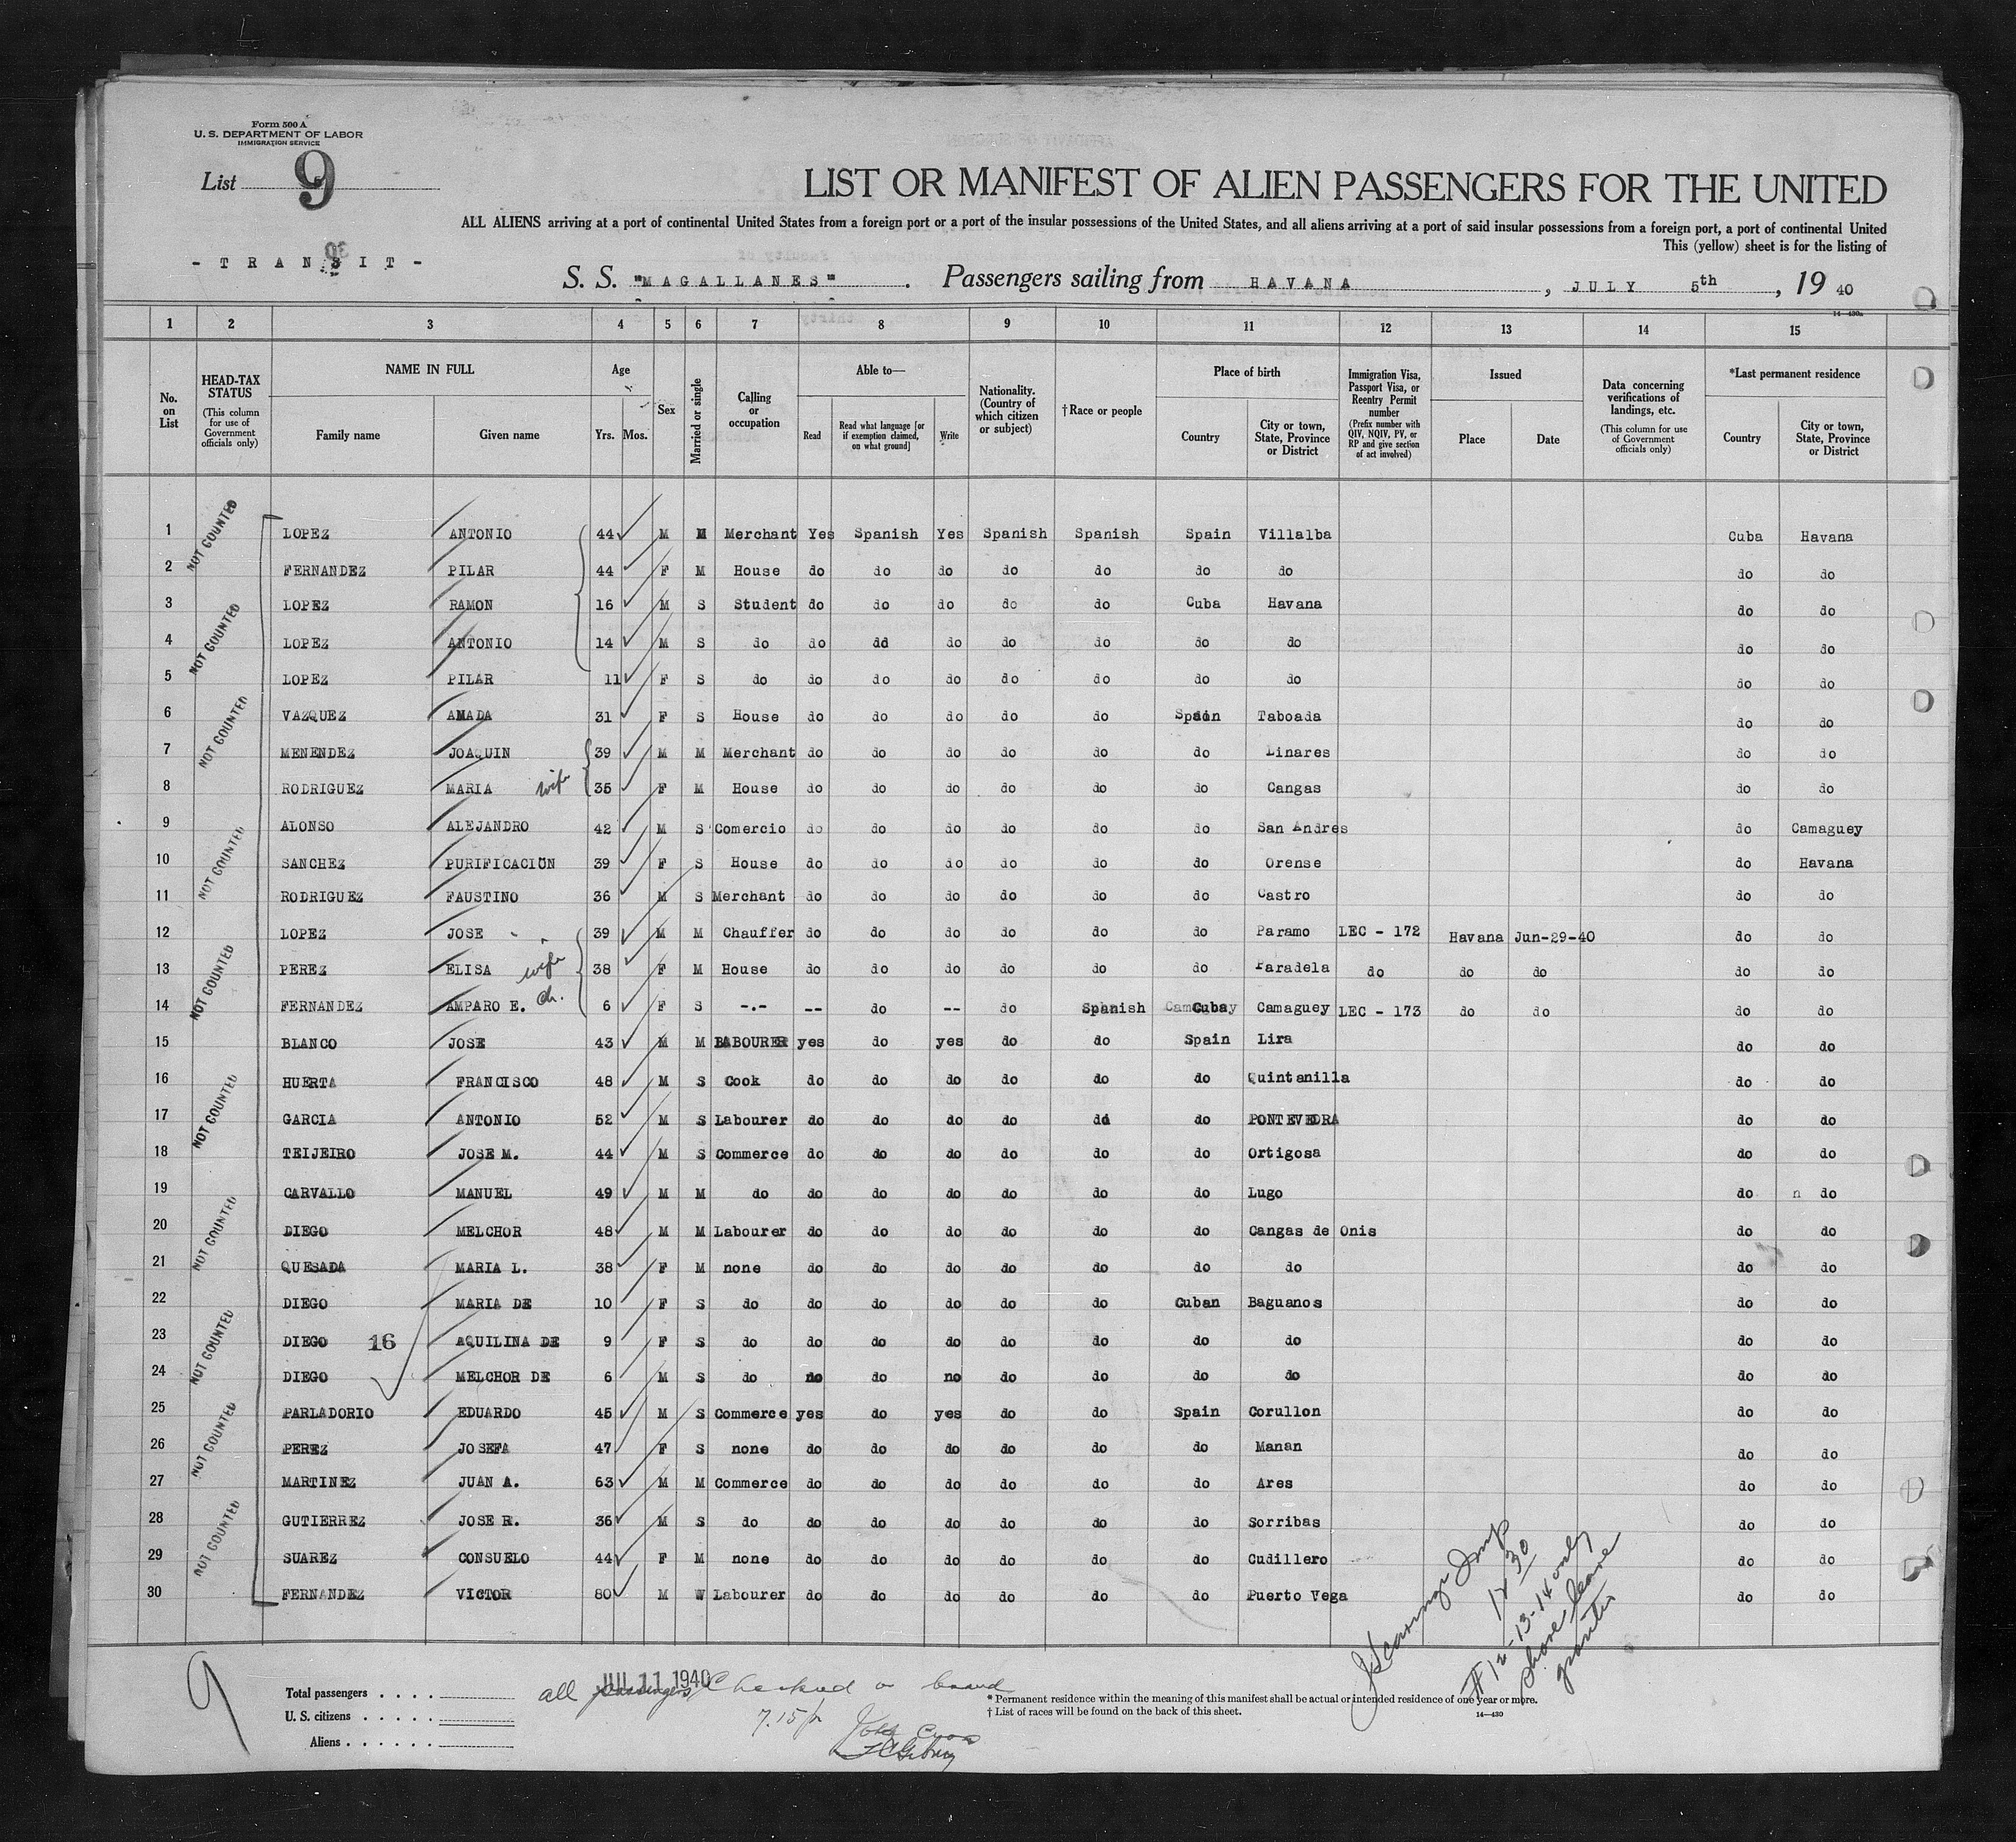 Form 500 A
U. S. DEPARTMENT OF LABOR
IMMIGRATION SERVICE
List 9
LIST OR MANIFEST OF ALIEN PASSENGERS FOR THE UNITED
ALL ALIENS arriving at a port of continental United States from a foreign port or a port of the insular possessions of the United States, and all aliens arriving at a port of said insular possessions from a foreign port, a port of continental United
This (yellow) sheet is for the listing of
30
- T R A N S I T -
S. S. "MAGALLANES" . Passengers sailing from HAVANA , JULY 5th , 19 40
14—430a
1 2 3 4 5 6 7 8 9 10 11 12 13 14 15
No. on List
HEAD-TAX STATUS (This column for use of Government officials only)
NAME IN FULL
Family name Given name
Age
Yrs. Mos.
Sex
Married or single
Calling or occupation
Able to—
Read Read what language [or if exemption claimed, on what ground] Write
Nationality. (Country of which citizen or subject)
† Race or people
Place of birth
Country City or town, State, Province or District
Immigration Visa, Passport Visa, or Reentry Permit number (Prefix number with QIV, NQIV, PV, or RP and give section of act involved)
Issued
Place Date
Data concerning verifications of landings, etc. (This column for use of Government officials only)
*Last permanent residence
Country City or town, State, Province or District
NOT COUNTED
NOT COUNTED
NOT COUNTED
NOT COUNTED
NOT COUNTED
NOT COUNTED
NOT COUNTED
NOT COUNTED
NOT COUNTED
NOT COUNTED
1 LOPEZ ANTONIO 44 M M Merchant Yes Spanish Yes Spanish Spanish Spain Villalba Cuba Havana
2 FERNANDEZ PILAR 44 F M House do do do do do do do do do
3 LOPEZ RAMON 16 M S Student do do do do do Cuba Havana do do
4 LOPEZ ANTONIO 14 M S do do dd do do do do do do do
5 LOPEZ PILAR 11 F S do do do do do do do do do do
6 VAZQUEZ AMADA 31 F S House do do do do do Spain Taboada do do
7 MENENDEZ JOAQUIN 39 M M Merchant do do do do do do Linares do do
8 RODRIGUEZ MARIA wife 35 F M House do do do do do do Cangas do do
9 ALONSO ALEJANDRO 42 M S Comercio do do do do do do San Andres do Camaguey
10 SANCHEZ PURIFICACION 39 F S House do do do do do do Orense do Havana
11 RODRIGUEZ FAUSTINO 36 M S Merchant do do do do do do Castro do do
12 LOPEZ JOSE 39 M M Chauffer do do do do do do Paramo LEC - 172 Havana Jun-29-40 do do
13 PEREZ ELISA wife 38 F M House do do do do do do Paradela do do do do do
14 FERNANDEZ AMPARO E. ch. 6 F S -.- -- do -- do Spanish Cuba Camaguey LEC - 173 do do do do
15 BLANCO JOSE 43 M M LABOURER yes do yes do do Spain Lira do do
16 HUERTA FRANCISCO 48 M S Cook do do do do do do Quintanilla do do
17 GARCIA ANTONIO 52 M S Labourer do do do do dd do PONTEVEDRA do do
18 TEIJEIRO JOSE M. 44 M S Commerce do do do do do do Ortigosa do do
19 CARVALLO MANUEL 49 M M do do do do do do do Lugo do n do
20 DIEGO MELCHOR 48 M M Labourer do do do do do do Cangas de Onis do do
21 QUESADA MARIA L. 38 F M none do do do do do do do do do
22 DIEGO MARIA DE 10 F S do do do do do do Cuban Baguanos do do
23 DIEGO 16 AQUILINA DE 9 F S do do do do do do do do do do
24 DIEGO MELCHOR DE 6 M S do no do no do do do do do do
25 PARLADORIO EDUARDO 45 M S Commerce yes do yes do do Spain Corullon do do
26 PEREZ JOSEFA 47 F S none do do do do do do Manan do do
27 MARTINEZ JUAN A. 63 M M Commerce do do do do do do Ares do do
28 GUTIERREZ JOSE R. 36 M S do do do do do do do Sorribas do do
29 SUAREZ CONSUELO 44 F M none do do do do do do Cudillero do do
30 FERNANDEZ VICTOR 80 M W Labourer do do do do do do Puerto Vega do do
30
#12-13-14 only
shore leave
9
JUL 11 1940
all passengers Checked on board
7.15 p
Total passengers . . . .
U. S. citizens . . . . .
Aliens . . . . . .
* Permanent residence within the meaning of this manifest shall be actual or intended residence of one year or more.
† List of races will be found on the back of this sheet.
14—430